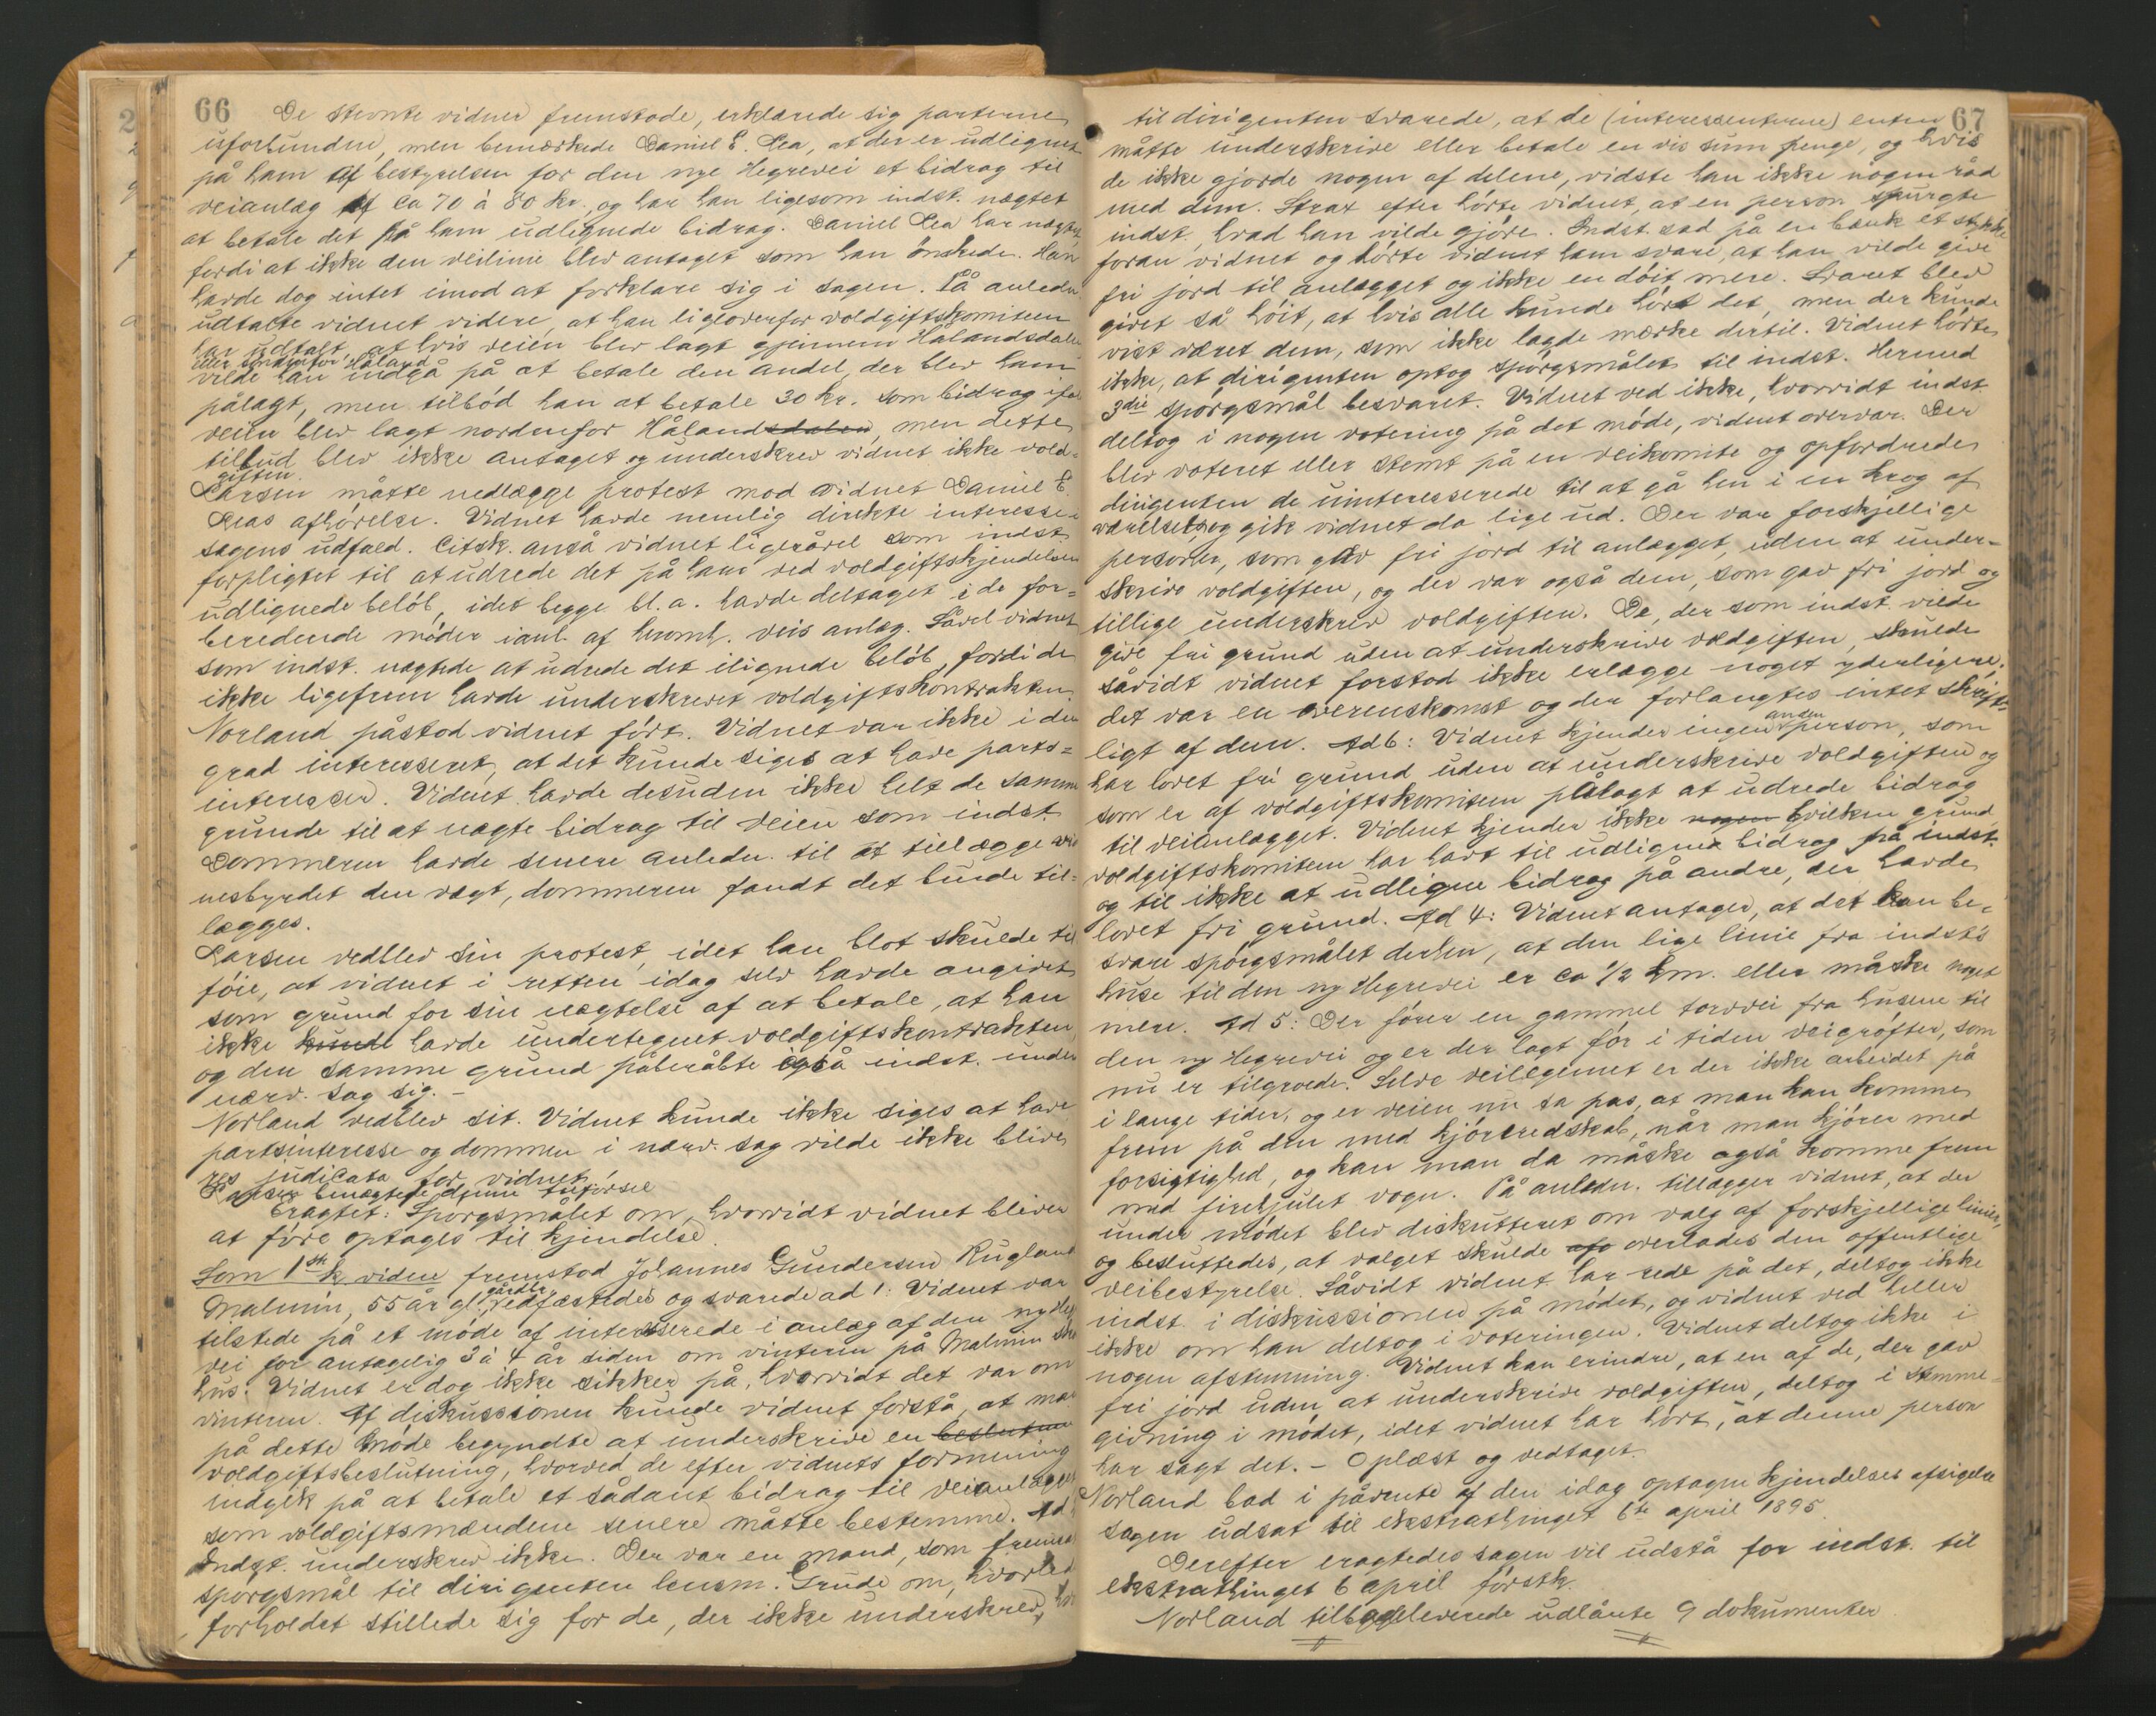 66
De stevnte vidner fremstode, erklærede sig parterne
uforbundne, men bemærkede Daniel E. Lea, at der er udlignet
på ham af bestyrelsen for den nye Hegrevei et bidrag til
veianlæg af ca 70 à 80 kr., og har han ligesom indst. nægtet
at betale det på ham udlignede bidrag. Daniel Lea har nægtet
fordi at ikke den veilinie blev antaget som han ønskede. Han
havde dog intet imod at forklare sig i sagen. På anledn.
udtalte vidnet videre, at han ligeoverfor voldgiftskomiteen
har udtalt, at hvis veien blev lagt gjennem Hålandsdalen
eller søndenfor Håland
vilde han indgå på at betale den andel, der blev ham
pålagt, men tilbød han at betale 30 kr. som bidrag ifald
veien blev lagt nordenfor Hålandsdalen, men dette
tilbud blev ikke antaget og underskrev vidnet ikke vold-
giften.
Larsen måtte nedlægge protest mod vidnet Daniel E.
Leas afhørelse. Vidnet havde nemlig direkte interesse i
sagens udfald. Citsk. anså vidnet ligesåvel som indst.
forpligtet til at udrede det på ham ved voldgiftskjendelsen
udlignede beløb, idet begge bl. a. havde deltaget i de for-
beredende møder ianl. af heromh. veis anlæg. Såvel vidnet
som indst. nægtede at udrede det ilignede beløb, fordi de
ikke ligefrem havde underskrevet voldgiftskontrakten.
Norland påstod vidnet ført. Vidnet var ikke i den
grad interesseret, at det kunde siges at have parts-
interesser. Vidnet havde desuden ikke helt de samme
grunde til at nægte bidrag til veien som indst.
Dommeren havde senere anledn. til at tillægge vid-
nesbyrdet den vægt, dommeren fandt det burde til-
lægges.
Larsen vedblev sin protest, idet han blot skulde til
føie, at vidnet i retten idag selv havde angivet
som grund for sin nægtelse af at betale, at han
ikke kunde havde undertegnet voldgiftskontrakten,
og den samme grund påberåbte også indst. under
nærv. sag sig. –
Norland vedblev sit. Vidnet kunde ikke siges at have
partsinteresse og dommen i nærv. sag vilde ikke blive
res judicata for vidnet.
Larsen benægtede denne tilførsel
Eragtet: Spørgsmålet om, hvorvidt vidnet bliver
at føre optages til kjendelse.
Som 1ste k. vidne fremstod Johannes Gundersen Rugland
gårdbr.
Malmin, 55 år gl. vedfæstedes og svarede ad 1: Vidnet var
tilstede på et møde af interesserede i anlæg af den ny Hegre
vei for antagelig 3 à 4 år siden om vinteren på Malmin skole
hus. Vidnet er dog ikke sikker på, hvorvidt det var om
vinteren. Af diskussionen kunde vidnet forstå, at man
på dette møde begyndte at underskrive en beslutning
voldgiftsbeslutning, hvorved de efter vidnets formening
indgik på at betale et sådant bidrag til veianlægget
som voldgiftsmændene senere måtte bestemme. Ad
Indst. underskrev ikke. Der var en mand, som fremsatte
spørgsmål til dirigenten lensm. Grude om, hvorledes
forholdet stillede sig for de, der ikke underskrev, hvor
67
til dirigenten svarede, at de (interessenterne) enten
måtte underskrive eller betale en vis sum penge, og hvis
de ikke gjorde nogen af delene, vidste han ikke nogen råd
med dem. Strax efter hørte vidnet, at en person spurgte
indst., hvad han vilde gjøre. Indst. sad på en bænk et stykke
foran vidnet og hørte vidnet ham svare, at han vilde give
fri jord til anlægget og ikke en døit mere. Svaret blev
givet så høit, at hvis alle kunde hørt det, men der kunde
vist været dem, som ikke lagde mærke dertil. Vidnet hørte
ikke, at dirigenten optog spørgsmålet til indst. Hermed
3die spørgsmål besvaret. Vidnet ved ikke, hvorvidt indst.
deltog i nogen votering på det møde, vidnet overvar. Der
blev voteret eller stemt på en veikomite og opfordrede
dirigenten de uinteresserede til at gå hen i en krog af
værelset, og gik vidnet da lige ud. Der var forskjellige
personer, som gav fri jord til anlægget, uden at under-
skrive voldgiften, og der var også dem, som gav fri jord og
tillige underskrev voldgiften. De, der som indst. vilde
give fri grund uden at underskrive voldgiften, skulde
såvidt vidnet forstod ikke erlægge noget yderligere,
det var en overenskomst og der forlangtes intet skrift-
anden
ligt af dem. Ad 6: Vidnet kjender ingen person, som
har lovet fri grund uden at underskrive voldgiften og
som er af voldgiftskomiteen pålagt at udrede bidrag
til veianlægget. Vidnet kjender ikke nogen hvilken grund
voldgiftskomiteen har havt til udligne bidrag på indst.
og til ikke at udligne bidrag på andre, der havde
lovet fri grund. Ad 4: Vidnet antager, at det kan be-
svare spørgsmålet derhen, at den lige linie fra indst's
huse til den ny Hegrevei er ca 1/2 km. eller måske noget
mere. Ad 5: Der fører en gammel torvvei fra husene til
den ny Hegrevei og er der lagt før i tiden veigrøfter, som
nu er tilgroede. Selve veilegemet er der ikke arbeidet på
i lange tider, og er veien nu sa pas, at man kan komme
frem på den med kjøreredskab, når man kjører med
forsigtighed, og kan man da måske også komme frem
med firehjulet vogn. På anledn. tillægger vidnet, at der
under mødet blev diskutteret om valg af forskjellige linier,
og besluttedes, at valget skulde afo overlades den offentlige
veibestyrelse. Såvidt vidnet har rede på det, deltog ikke
indst. i diskussionen på mødet, og vidnet ved heller
ikke om han deltog i voteringen. Vidnet deltog ikke i
nogen afstemning. Vidnet kan erindre, at en af de, der gav
fri jord uden at underskrive voldgiften, deltog i stemme-
givning i mødet, idet vidnet har hørt, at denne person
har sagt det. – Oplæst og vedtaget.
Norland bad i påvente af den idag optagne kjendelses afsigelse
sagen udsat til ekstrathinget 6te april 1895.
Derefter eragtedes sagen vil udstå for indst. til
ekstrathinget 6 april førstk.
Norland tilbageleverede udlånte 9 dokumenter